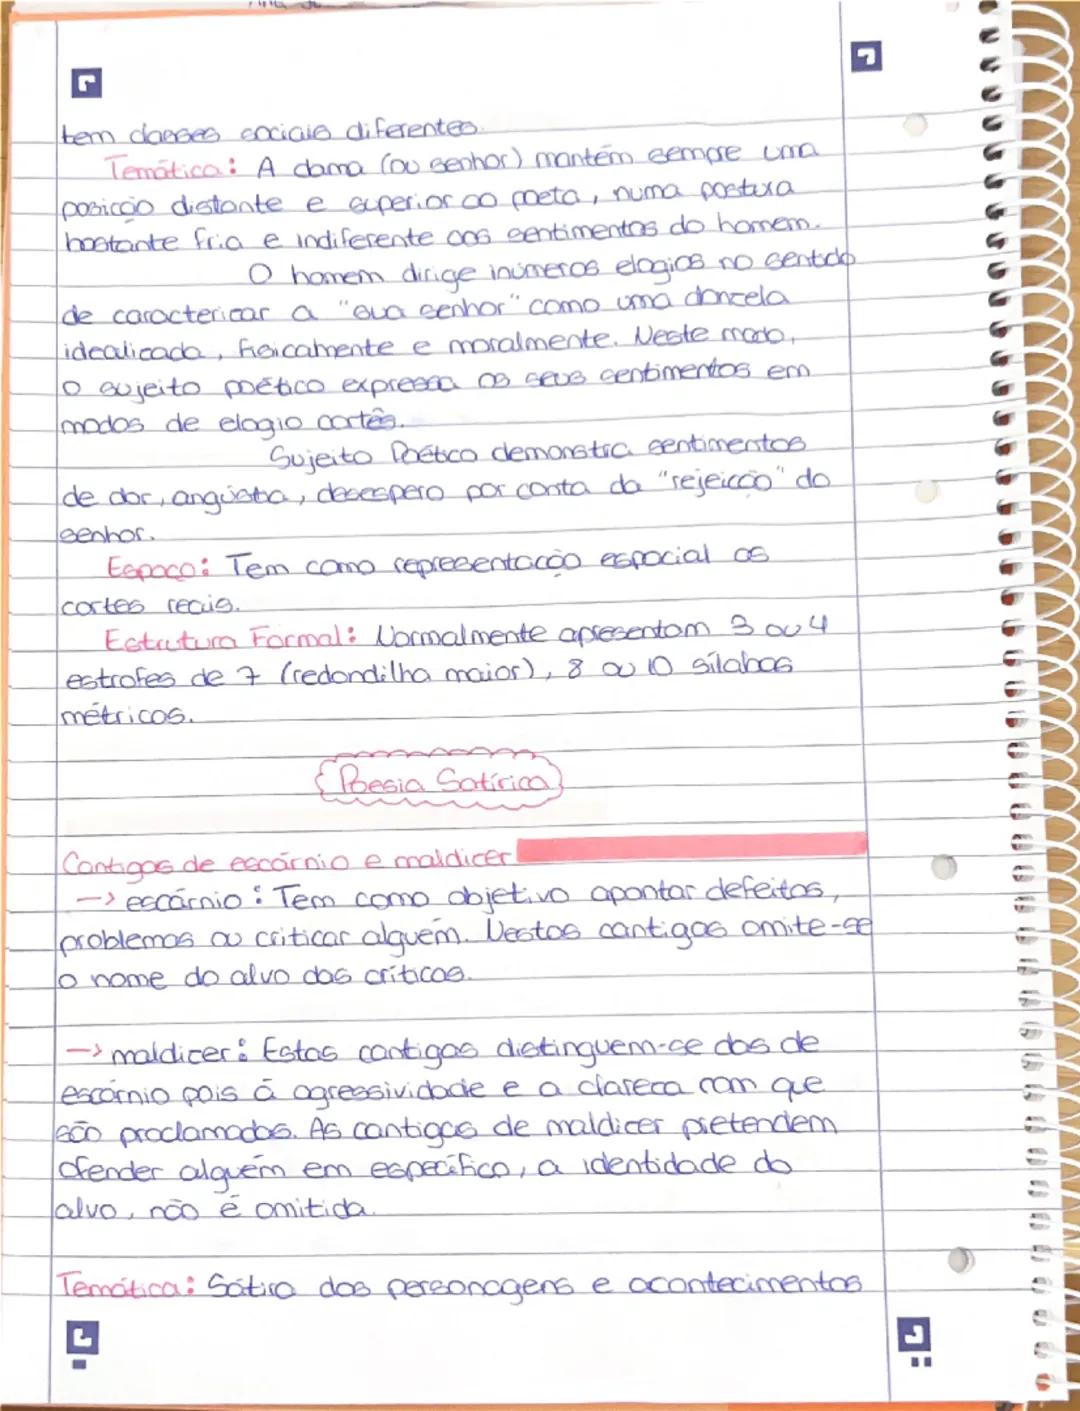 tem classes sociais diferentes.
Temática: A dama (ou senhor) mantém sempre uma
posição distante e superior ao poeta, numa postura
bastante fria e indiferente aos sentimentos do homem.
O homem dirige inúmeros elogios no sentido
de caracterizar a "sua senhor" como uma donzela
idealizada, fisicamente e moralmente. Neste modo,
o sujeito poético expressa os seus sentimentos em
modos de elogio cortês.
Sujeito Poético demonstra sentimentos
de dor, angústia, desespero por conta da "rejeição" do
senhor.
Espaço: Tem como representação espacial as
cortes reais.
Estrutura Formal: Normalmente apresentam 3 ou 4
estrofes de 7 (redondilha maior), 8 ou 10 sílabas
métricas.
Poesia Satírica
Cantigas de escárnio e maldizer
-> escárnio: Tem como objetivo apontar defeitos,
problemas ou criticar alguém. Nestas cantigas omite-se
o nome do alvo das críticas.
-> maldizer: Estas cantigas distinguem-se das de
escárnio pois á agressividade e a clareza com que
são proclamadas. As cantigas de maldizer pretendem
ofender alguém em específico, a identidade do
alvo, não é omitida.
Temática: Sátira das personagens e acontecimentos